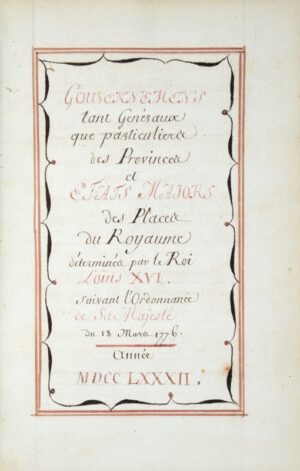 GOUVERNEMENS
tant Généraux
que particuliers
des Provinces
et
ETATS MAJORS
des Places
du Royaume
déterminés par le Roi
Loüis XVI.
suivant l'Ordonnance
de Sa Majesté
du 18 Mars 1776.
Année
MDCC LXXXII.